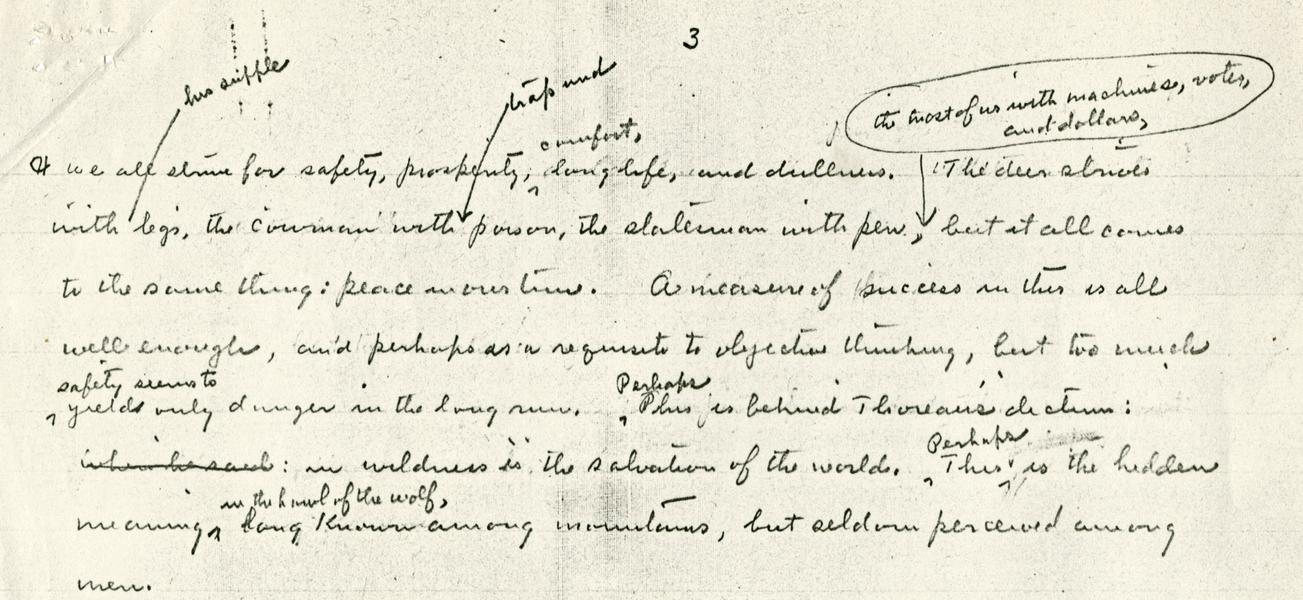 3
his supple
trap and
the most of us with machines, votes,
and dollars,
comfort,
¶ we all strive for safety, prosperity, long life, and dullness. The deer strives
with legs, the cowman with poison, the statesman with pen, but it all comes
to the same thing: peace in our time. A measure of success in this is all
well enough, and perhaps is a requisite to objective thinking, but too much
safety seems to
yields only danger in the long run. Perhaps
This is behind Thoreau's dictum:
when he said: in wildness is the salvation of the world. Perhaps
This is the hidden
in the howl of the wolf,
meaning, long known among mountains, but seldom perceived among
men.